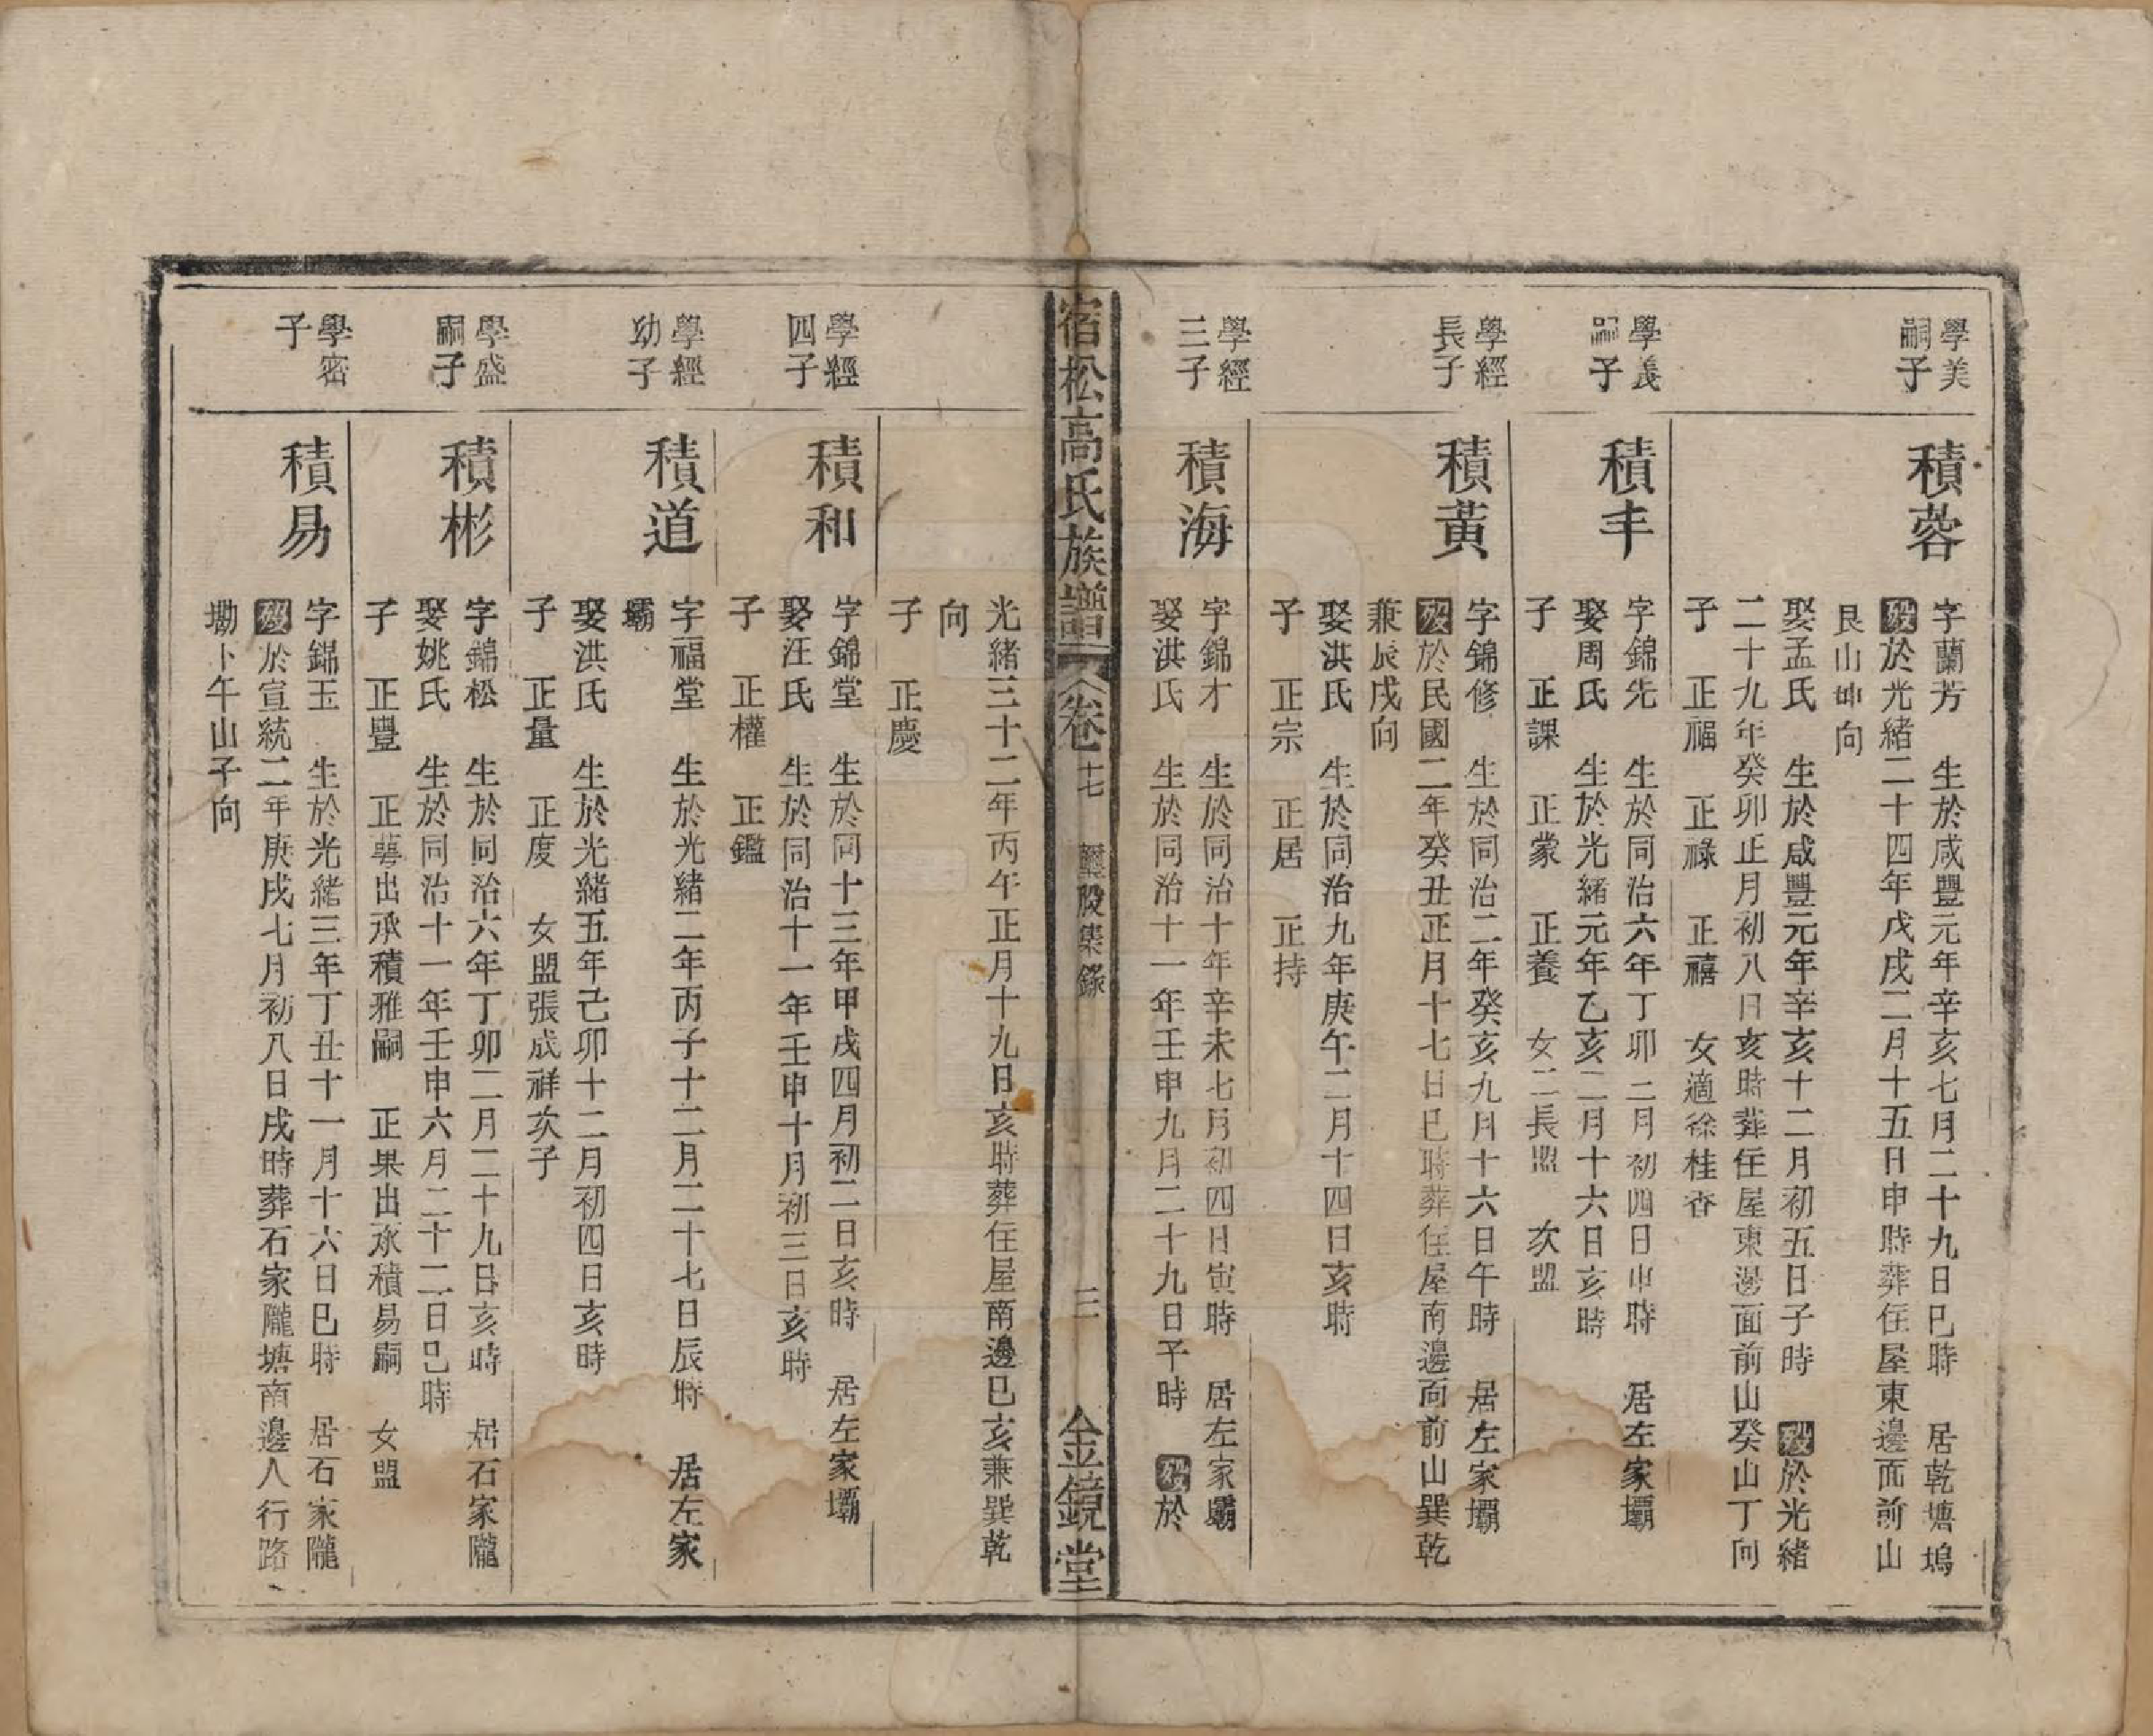 學美
嗣子
積蓉
字蘭芳 生於咸豐元年辛亥七月二十九日巳時 居乾塘塢
歿於光緒二十四年戊戌二月十五日申時葬住屋東邊面前山
艮山坤向
娶孟氏 生於咸豐元年辛亥十二月初五日子時 歿於光緒
二十九年癸卯正月初八日亥時葬住屋東邊面前山癸山丁向
子 正福 正祿 正禧 女適徐桂香
學義
嗣子
積丰
字錦先 生於同治六年丁卯二月初四日申時 居左家壩
娶周氏 生於光緒元年乙亥二月十六日亥時
子 正課 正蒙 正養 女二長盟 次盟
學經
長子
積黃
字錦修 生於同治二年癸亥九月十六日午時 居左家壩
歿於民國二年癸丑正月十七日巳時葬住屋南邊面前山巽乾
兼辰戌向
娶洪氏 生於同治九年庚午二月十四日亥時
子 正宗 正居 正持
學經
三子
積海
字錦才 生於同治十年辛未七月初四日寅時 居左家壩
娶洪氏 生於同治十一年壬申九月二十九日午時 歿於
宿松高氏族譜 卷十七 股集錄 三 金鏡堂
光緒三十二年丙午正月十九日亥時葬住屋南邊巳亥兼巽乾
向
子 正慶
學經
四子
積和
字錦堂 生於同十三年甲戌四月初二日亥時 居左家壩
娶汪氏 生於同治十一年壬申十月初三日亥時
子 正權 正鑑
學經
幼子
積道
字福堂 生於光緒二年丙子十二月二十七日辰時 居左家
壩
娶洪氏 生於光緒五年己卯十二月初四日亥時
子 正量 正度 女盟張成祥次子
學盛
嗣子
積彬
字錦松 生於同治六年丁卯二月二十九日亥時 居石家隴
娶姚氏 生於同治十一年壬申六月二十二日巳時
子 正豐 正萼出承積雅嗣 正果出承積易嗣 女盟
學密
子
積易
字錦玉 生於光緒三年丁丑十一月十六日巳時 居石家隴
歿於宣統二年庚戌七月初八日戌時葬石家隴塘南邊人行路
塝卜午山子向